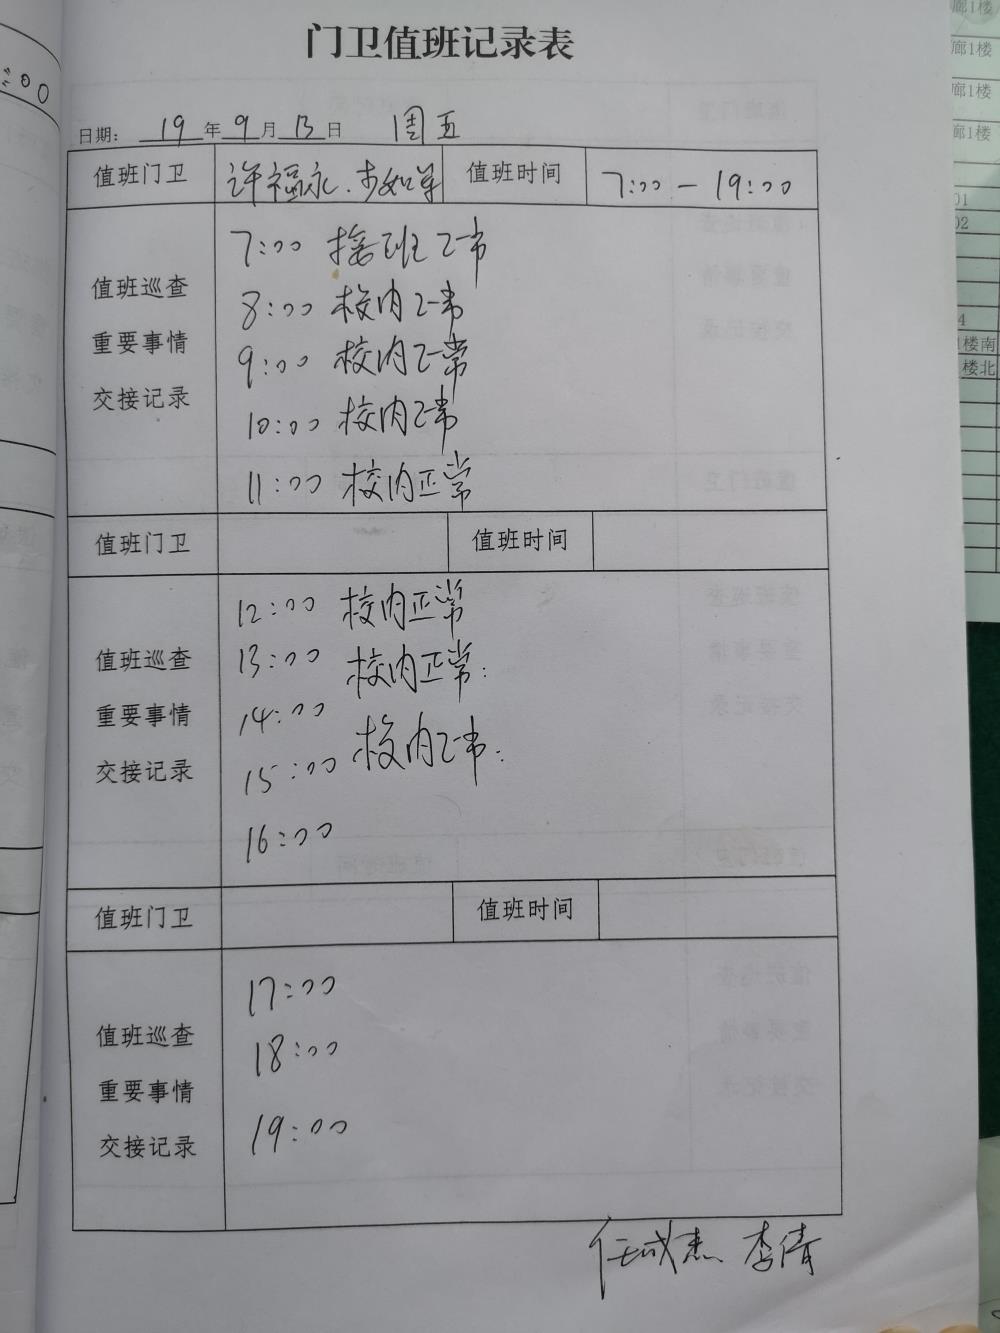 门卫值班记录表
日期: 19 年 9 月 13 日 周五
值班门卫 许福永. 值班时间 7:00 — 19:00
值班巡查
重要事情
交接记录
7:00 接班正常
8:00 校内正常
9:00 校内正常
10:00 校内正常
11:00 校内正常
值班门卫 值班时间
值班巡查
重要事情
交接记录
12:00 校内正常
13:00 校内正常.
14:00
校内正常.
15:00
16:00
值班门卫 值班时间
值班巡查
重要事情
交接记录
17:00
18:00
19:00
任成杰 李倩
:00
廊1楼
廊1楼
廊1楼
廊1楼
01
02
4
楼南
楼北